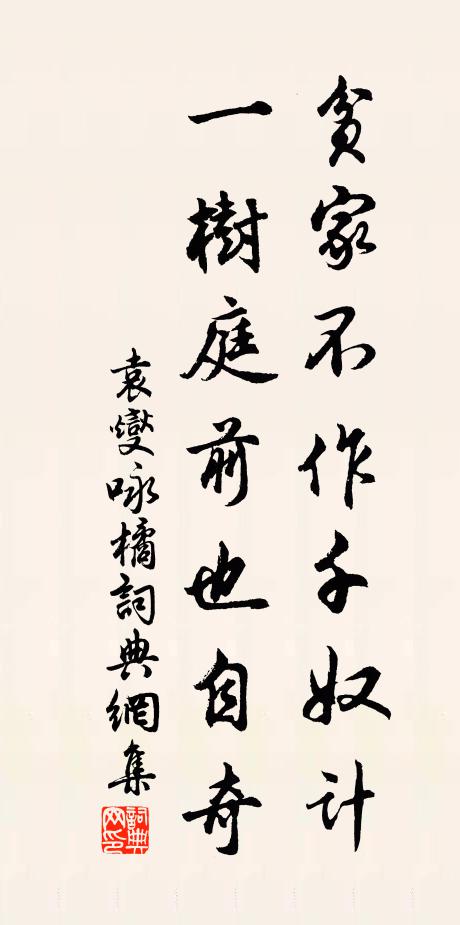 貧家不作千奴計
一樹庭前也自奇
袁燮咏橘詞典網集
詞典
網印